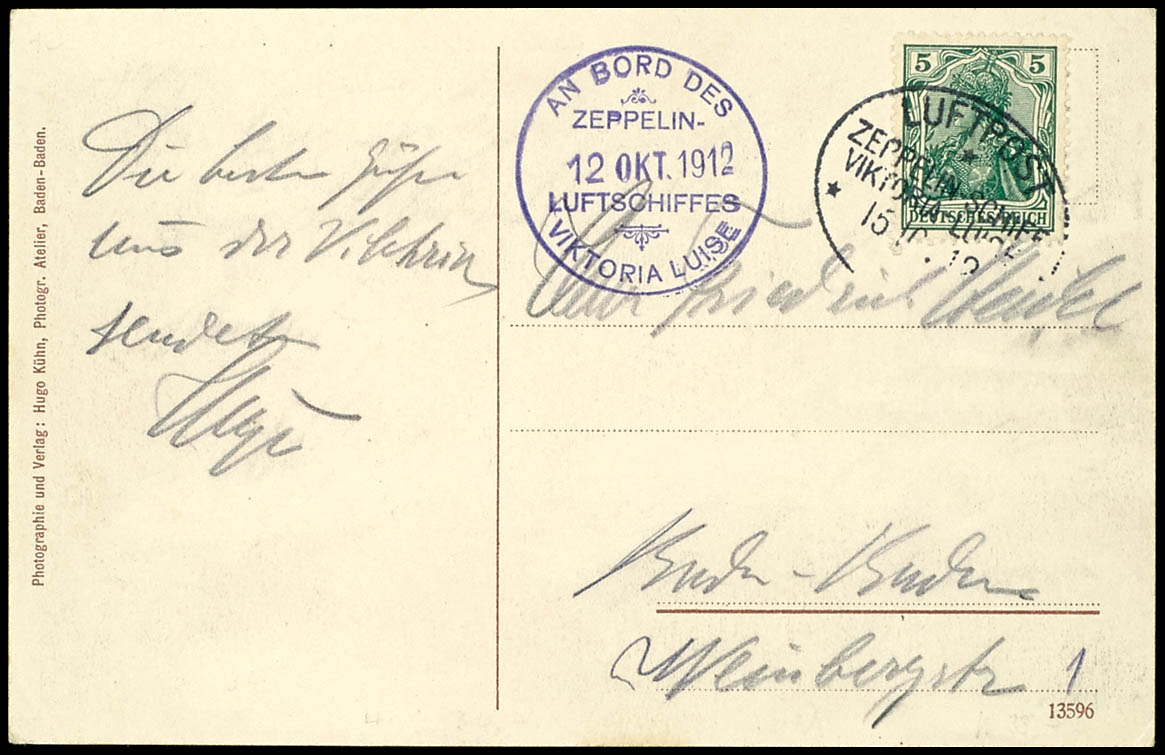 Photographie und Verlag: Hugo Kühn, Photogr. Atelier, Baden-Baden.
Die besten Grüße
aus der Viktoria
sendet
AN BORD DES
ZEPPELIN-
12 OKT. 1912
LUFTSCHIFFES
VIKTORIA LUISE
5 5
DEUTSCHES REICH
LUFTPOST
ZEPPELIN SCHIFF
VIKTORIA LUISE
15
Friedrich
Baden-Baden
Weinbergstr 1
13596